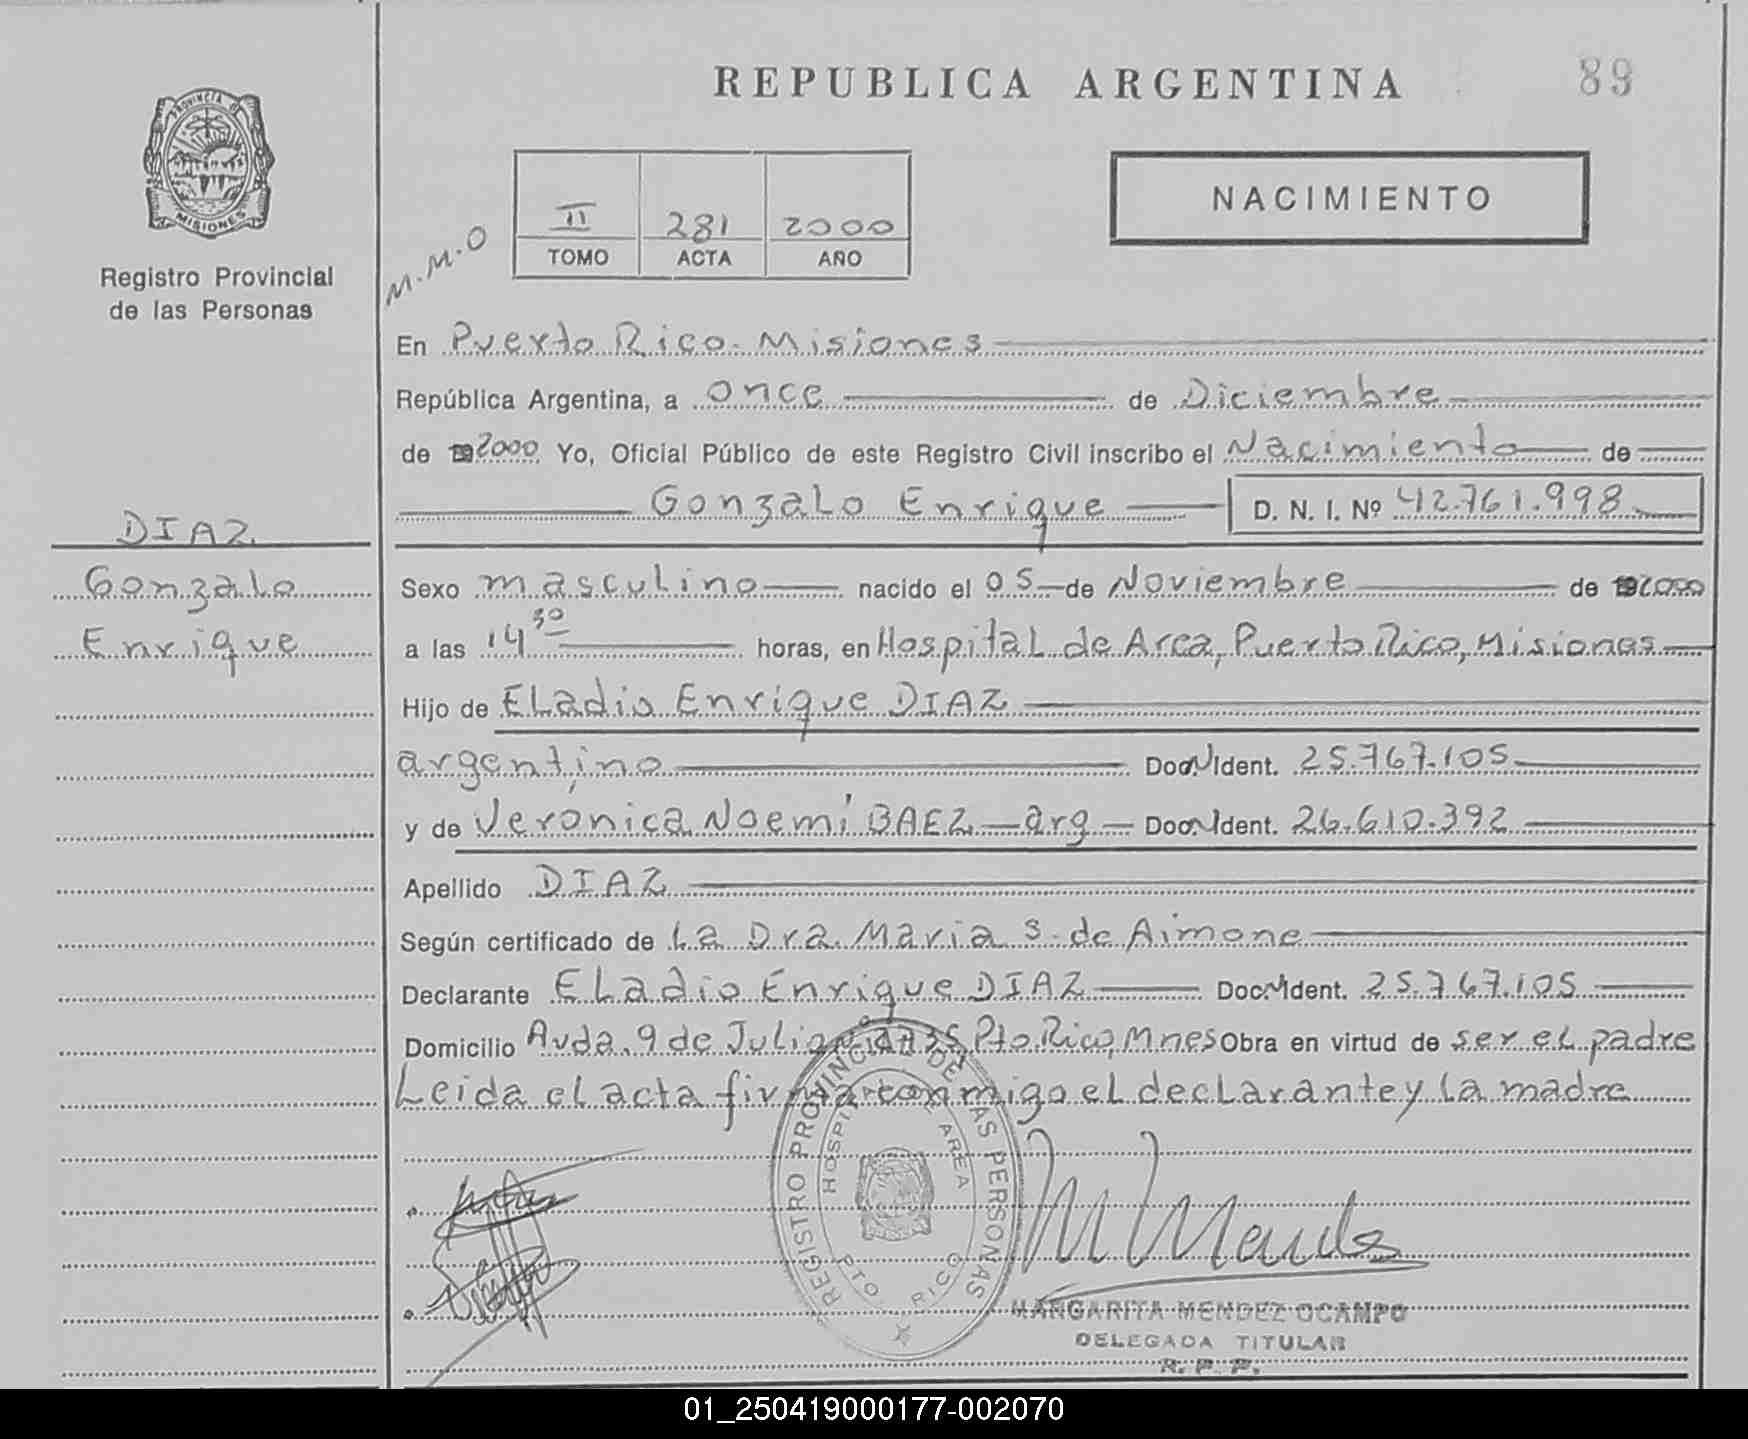 REPUBLICA ARGENTINA
89
PROVINCIA DE
MISIONES
Registro Provincial
de las Personas
M.M.O
II 281 2000
TOMO ACTA AÑO
NACIMIENTO
En Puerto Rico. Misiones
República Argentina, a once de Diciembre
de 2000 Yo, Oficial Público de este Registro Civil inscribo el Nacimiento de
Gonzalo Enrique D. N. I. Nº 42.761.998
DIAZ
Gonzalo
Enrique
Sexo masculino nacido el 05 de Noviembre de 2000
a las 14 30 horas, en Hospital de Area, Puerto Rico, Misiones
Hijo de Eladio Enrique DIAZ
argentino Doc. Ident. 25.767.105
y de Veronica Noemí BAEZ arg Doc. Ident. 26.610.392
Apellido DIAZ
Según certificado de La Dra. Maria S. de Aimone
Declarante Eladio Enrique DIAZ Doc. Ident. 25.767.105
Domicilio Avda. 9 de Julio Pto. Rico, Mnes Obra en virtud de ser el padre
Leida el acta firma conmigo el declarante y la madre
REGISTRO PROVINCIAL DE LAS PERSONAS
HOSPITAL AREA
PTO. RICO
MARGARITA MENDEZ OCAMPO
DELEGADA TITULAR
R. P. P.
01_250419000177-002070